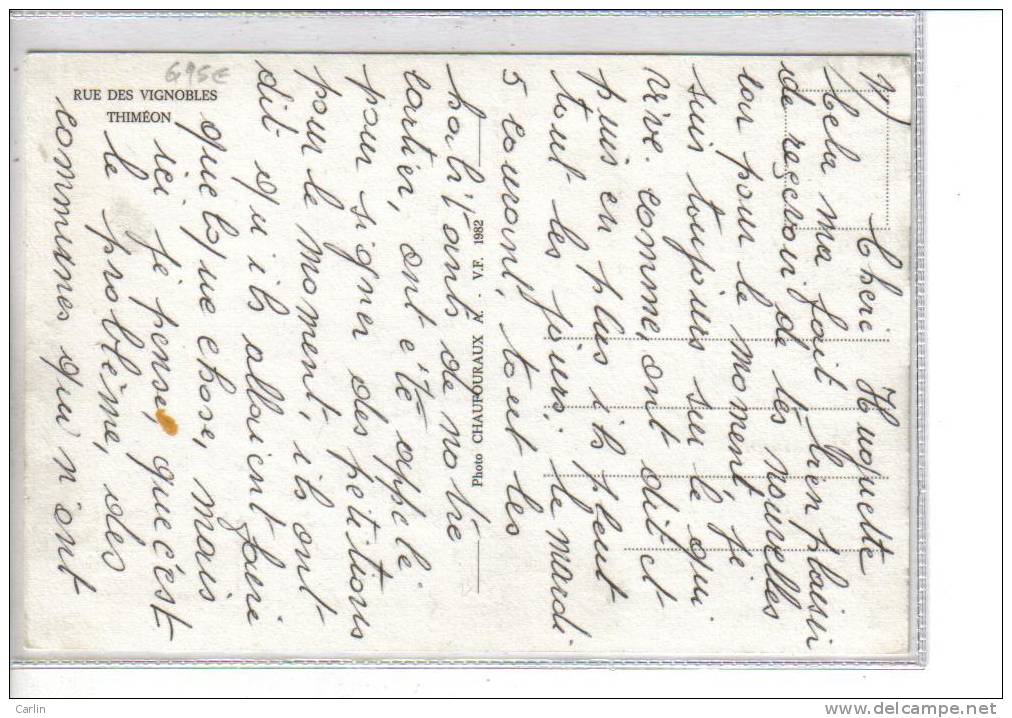 695€
RUE DES VIGNOBLES
THIMÉON
Photo CHAUFOURAUX A. - V.F. 1982
1)
Chere Huguette
Cela ma fait bien plaisir
de reçevoir de tes nouvelles
car pour le moment, je
suis toujours sur le qui
vive. comme, ont dit et
puis en plus ils pleut
tout les jours, le mardi
5 courant, tout les
habitants de notre
cartier, ont été appelé
pour signer des pétitions
pour le moment, ils ont
dit qu'ils allaient faire
quelque chose, mais
ici je pense que c'est
le problème, des
communes qui n'ont
Carlin
www.delcampe.net